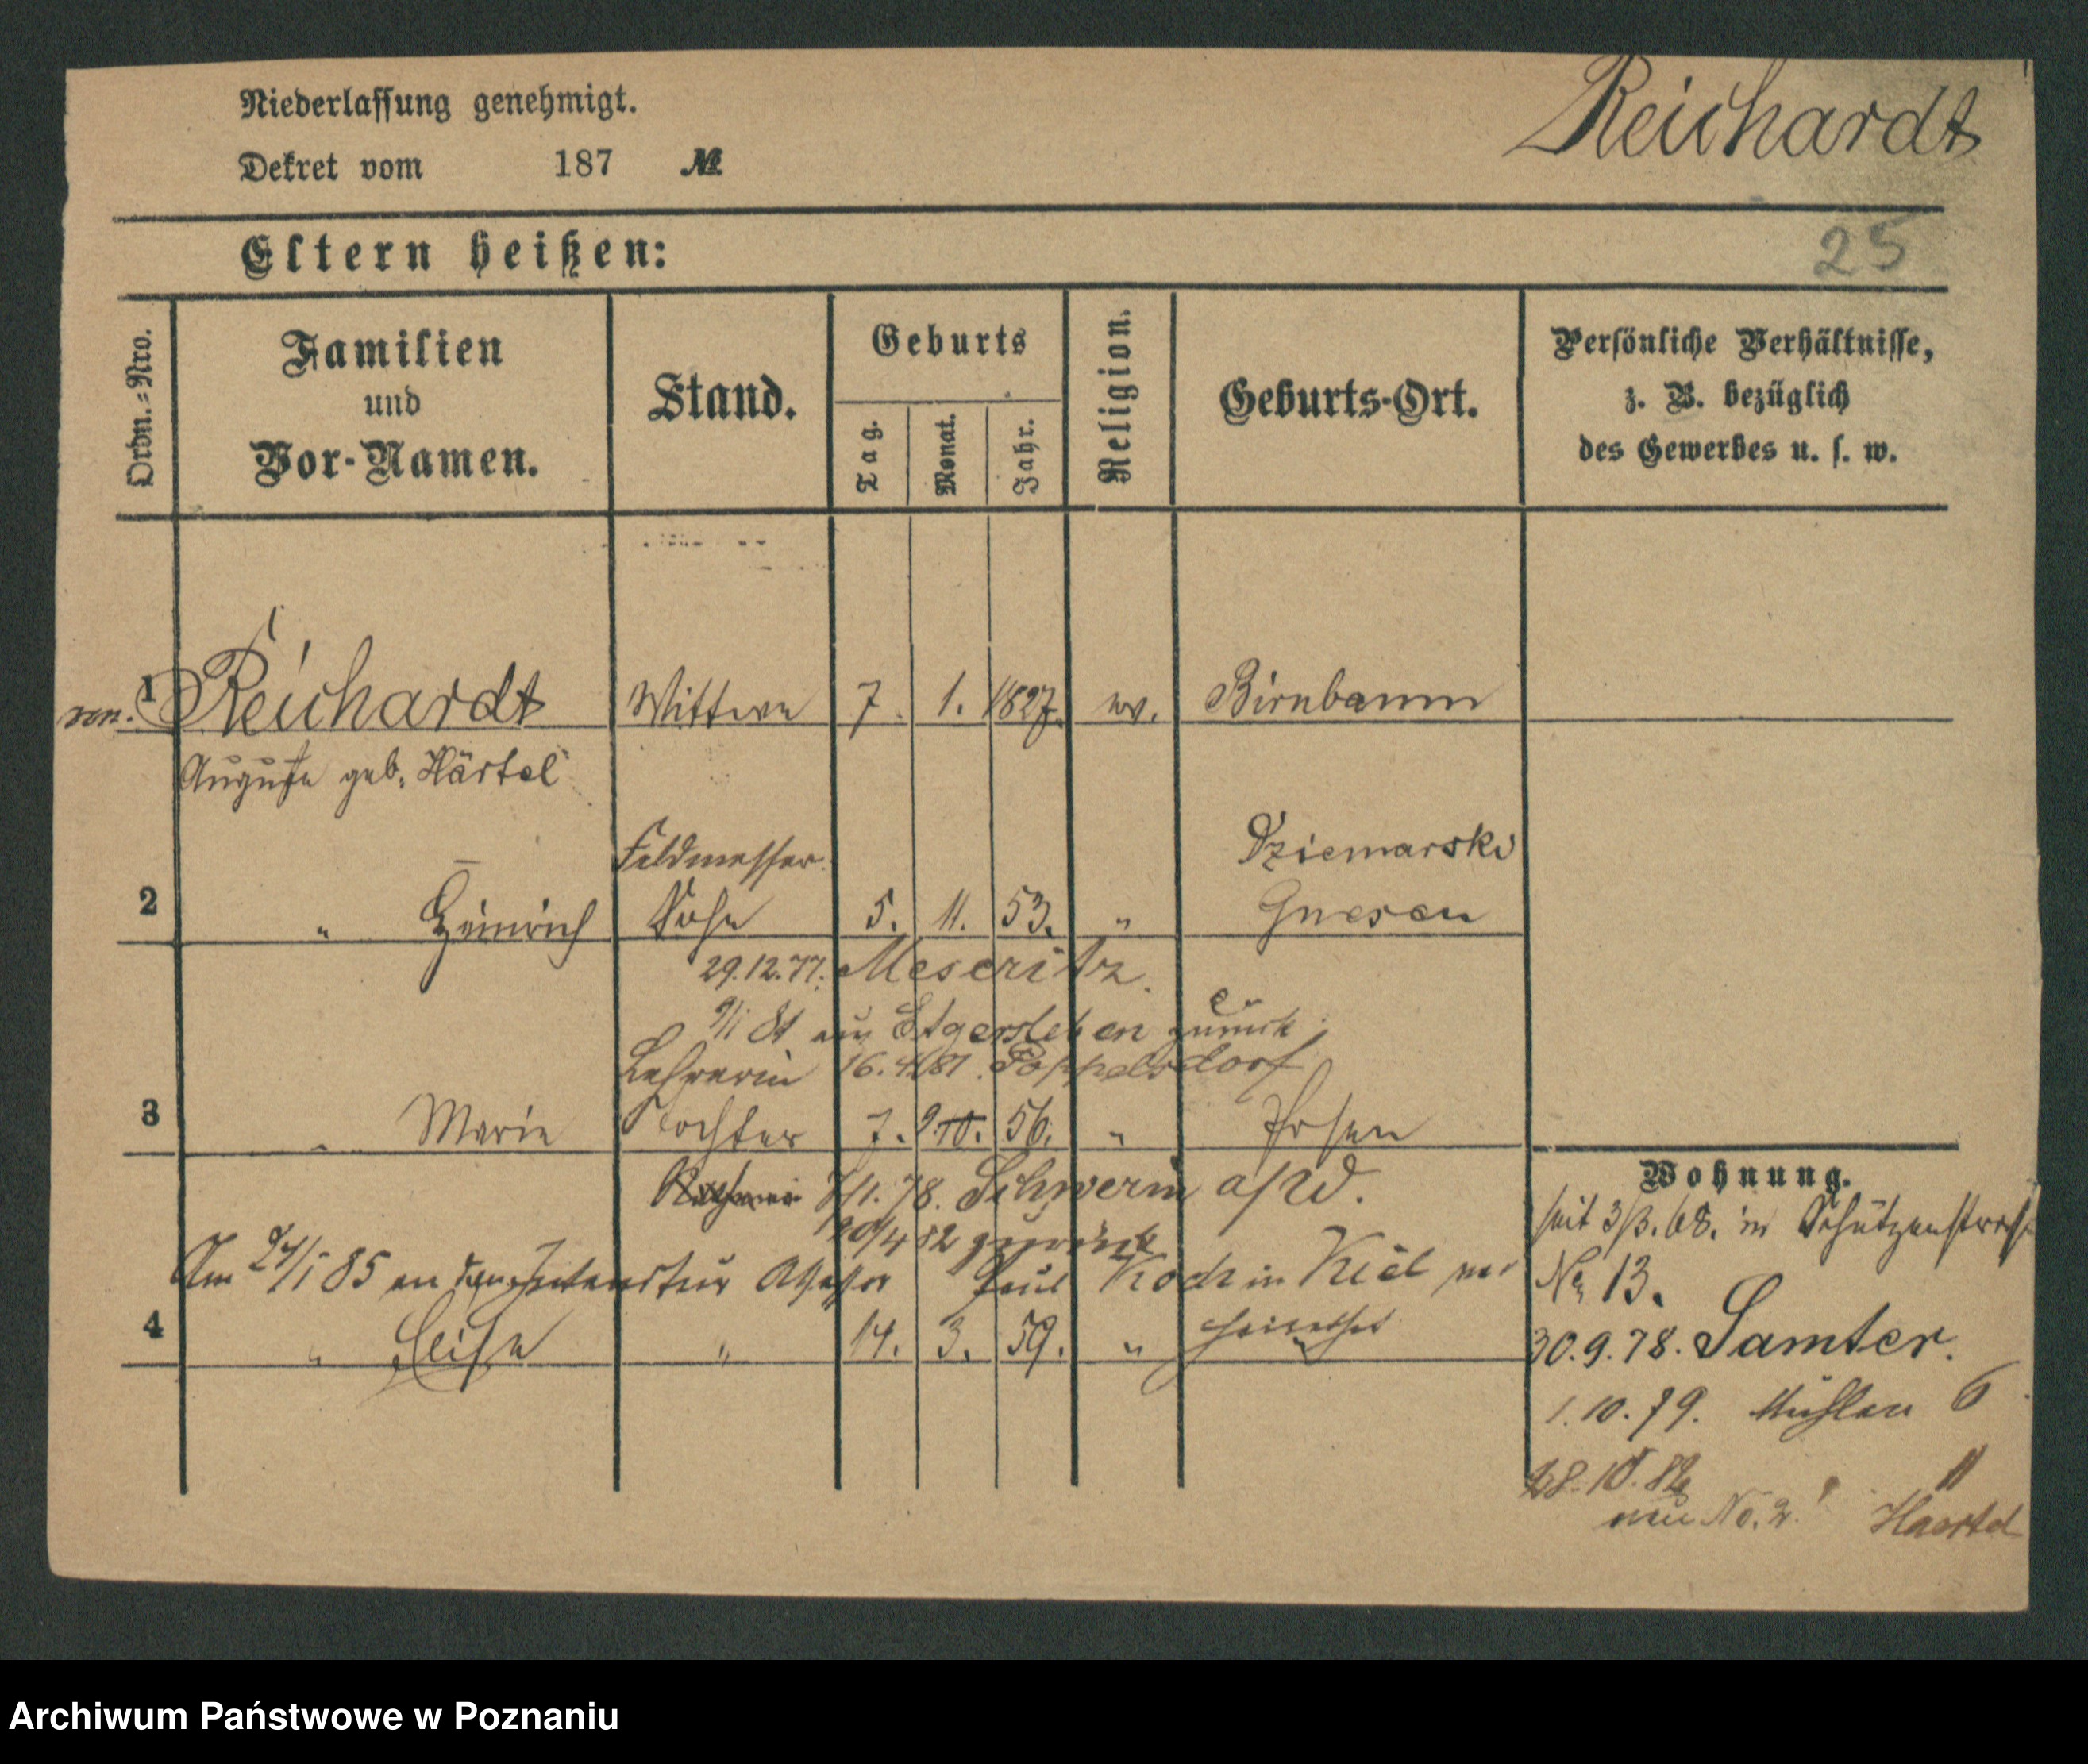 Niederlassung genehmigt.
Reichardt
Dekret vom 187 №
Eltern heißen:
25
Ordn.-Nro.
Familien
und
Vor-Namen.
Stand.
Geburts
Tag.
Monat.
Jahr.
Religion.
Geburts-Ort.
Persönliche Verhältnisse,
z. B. bezüglich
des Gewerbes u. s. w.
1 Reichardt Wittwe 7. 1. 1827. ev. Birnbaum
Auguste geb. Härtel
Feldmesser Dziemarski
2 " Heinrich Sohn 5. 11. 53. " Gnesen
29.12.77. Meseritz.
81 aus Etgersleben zurück
Lehrerin 16.4.81. Poppelsdorf
3 " Marie Tochter 7. 9. 10. 56. " Posen
Wohnung.
78. Schwerin a/W.
seit 3/3.68. in Schützenstrasse
20/4 82 zurück
Am 24/1 85 an den Intendantur Assessor Paul Koch in Kiel ver
No 13.
4 " Elise " 14. 3. 59. " heirathet
30.9.78. Samter.
1.10.79. Mühlen 6
28.10.82
neu No. 2. Haertel